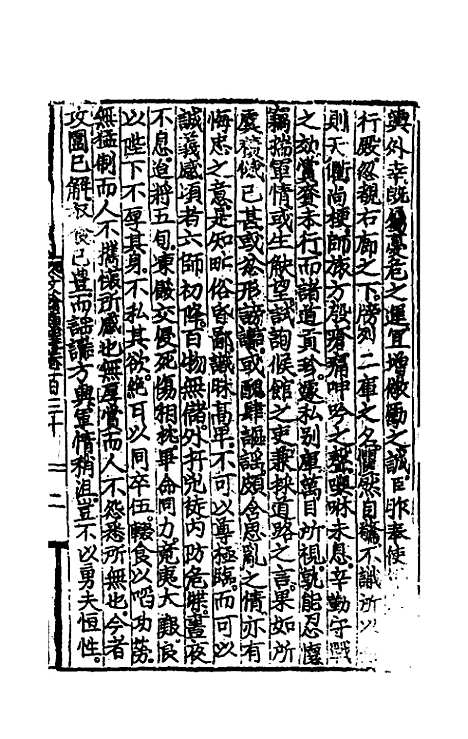 輿外幸既屬憂危之運宜增儆勵之誠臣昨奉使
行殿忽覩右廊之下牓列二庫之名懼然自驚不識所以
則天衢尚梗師旅方殷瘡痛呻吟之聲噢咻未息辛勤守戰
之効賞賚未行而諸道貢珍遽私别庫萬目所視孰能忍懷
竊揣軍情或生觖望試詢候館之吏兼採道路之言果如所
虞積憾已甚或忿形謗讟或醜肆謳謡頗含思亂之情亦有
悔忠之意是知甿俗昏鄙識昧高卑不可以尊極臨而可以
誠義感頃者六師初降百物無儲外扞兇徒内防危堞晝夜
不息迨將五旬凍餒交侵死傷相枕畢命同力竟夷大艱良
以陛下不厚其身不私其欲絶甘以同卒伍輟食以啗功勞
無猛制而人不擕懷所感也無厚賞而人不怨悉所無也今者
攻圍已解衣食已豊而謡讟方興軍情稍沮豈不以勇夫恒性
百二十